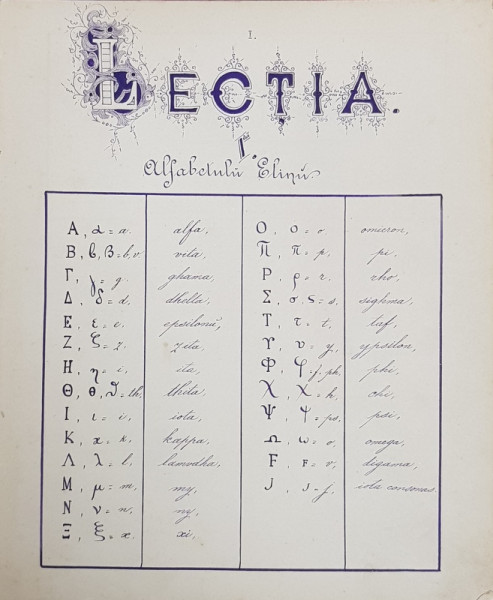 I.
LECȚIA.
I.
Alfabetulŭ Elinŭ.
Α, α = a. alfa,
Β, ϐ, β = b, v vita,
Γ, γ = g. ghama,
Δ, δ = d. dhelta,
Ε, ε = e. epsilonŭ,
Ζ, ζ = z. zita,
Η, η = i, ita,
Θ, θ, ϑ = th. thita,
Ι, ι = i, iota,
Κ, κ = k. kappa,
Λ, λ = l. lamvdha,
Μ, μ = m, my,
Ν, ν = n, ny,
Ξ, ξ = x. xi,
Ο, ο = o. omicron,
Π, π = p, pi,
Ρ, ρ = r. rho,
Σ, σ, ς = s, sighma,
Τ, τ = t, taf,
Υ, υ = y, ypsilon,
Φ, φ = f, ph, phi,
Χ, χ = h, chi,
Ψ, ψ = ps, psi,
Ω, ω = o, omega,
Ϝ, ϝ = v, digama,
J, J = j. iota consonas.